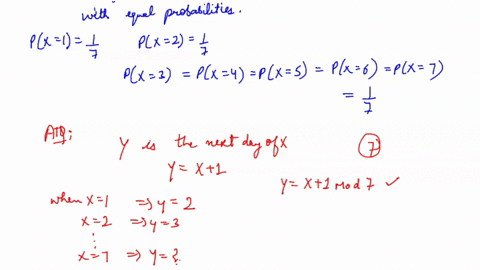 with equal probabilities.
P(X=1) = 1/7 P(X=2) = 1/7
P(X=3) = P(X=4) = P(X=5) = P(X=6) = P(X=7)
= 1/7
ATQ:
Y is the next day of X
7
Y = X+1
Y = X+1 mod 7 ✓
when X=1 ⇒ y = 2
X=2 ⇒ y = 3
⋮
X=7 ⇒ Y = ?